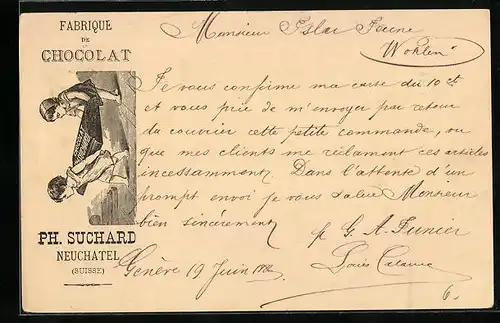 FABRIQUE
DE
CHOCOLAT
PH. SUCHARD
NEUCHATEL
(SUISSE)
Monsieur Isler Jeune
Wohlen
Je vous confirme ma carte du 10 ct
et vous prie de m'envoyer par retour
du courrier cette petite commande, vu
que mes clients me réclament ces articles
incessamment. Dans l'attente d'un
prompt envoi je vous salue Monsieur
bien sincèrement
p G. A. Funier
Louis
Genève 19 Juin
6.